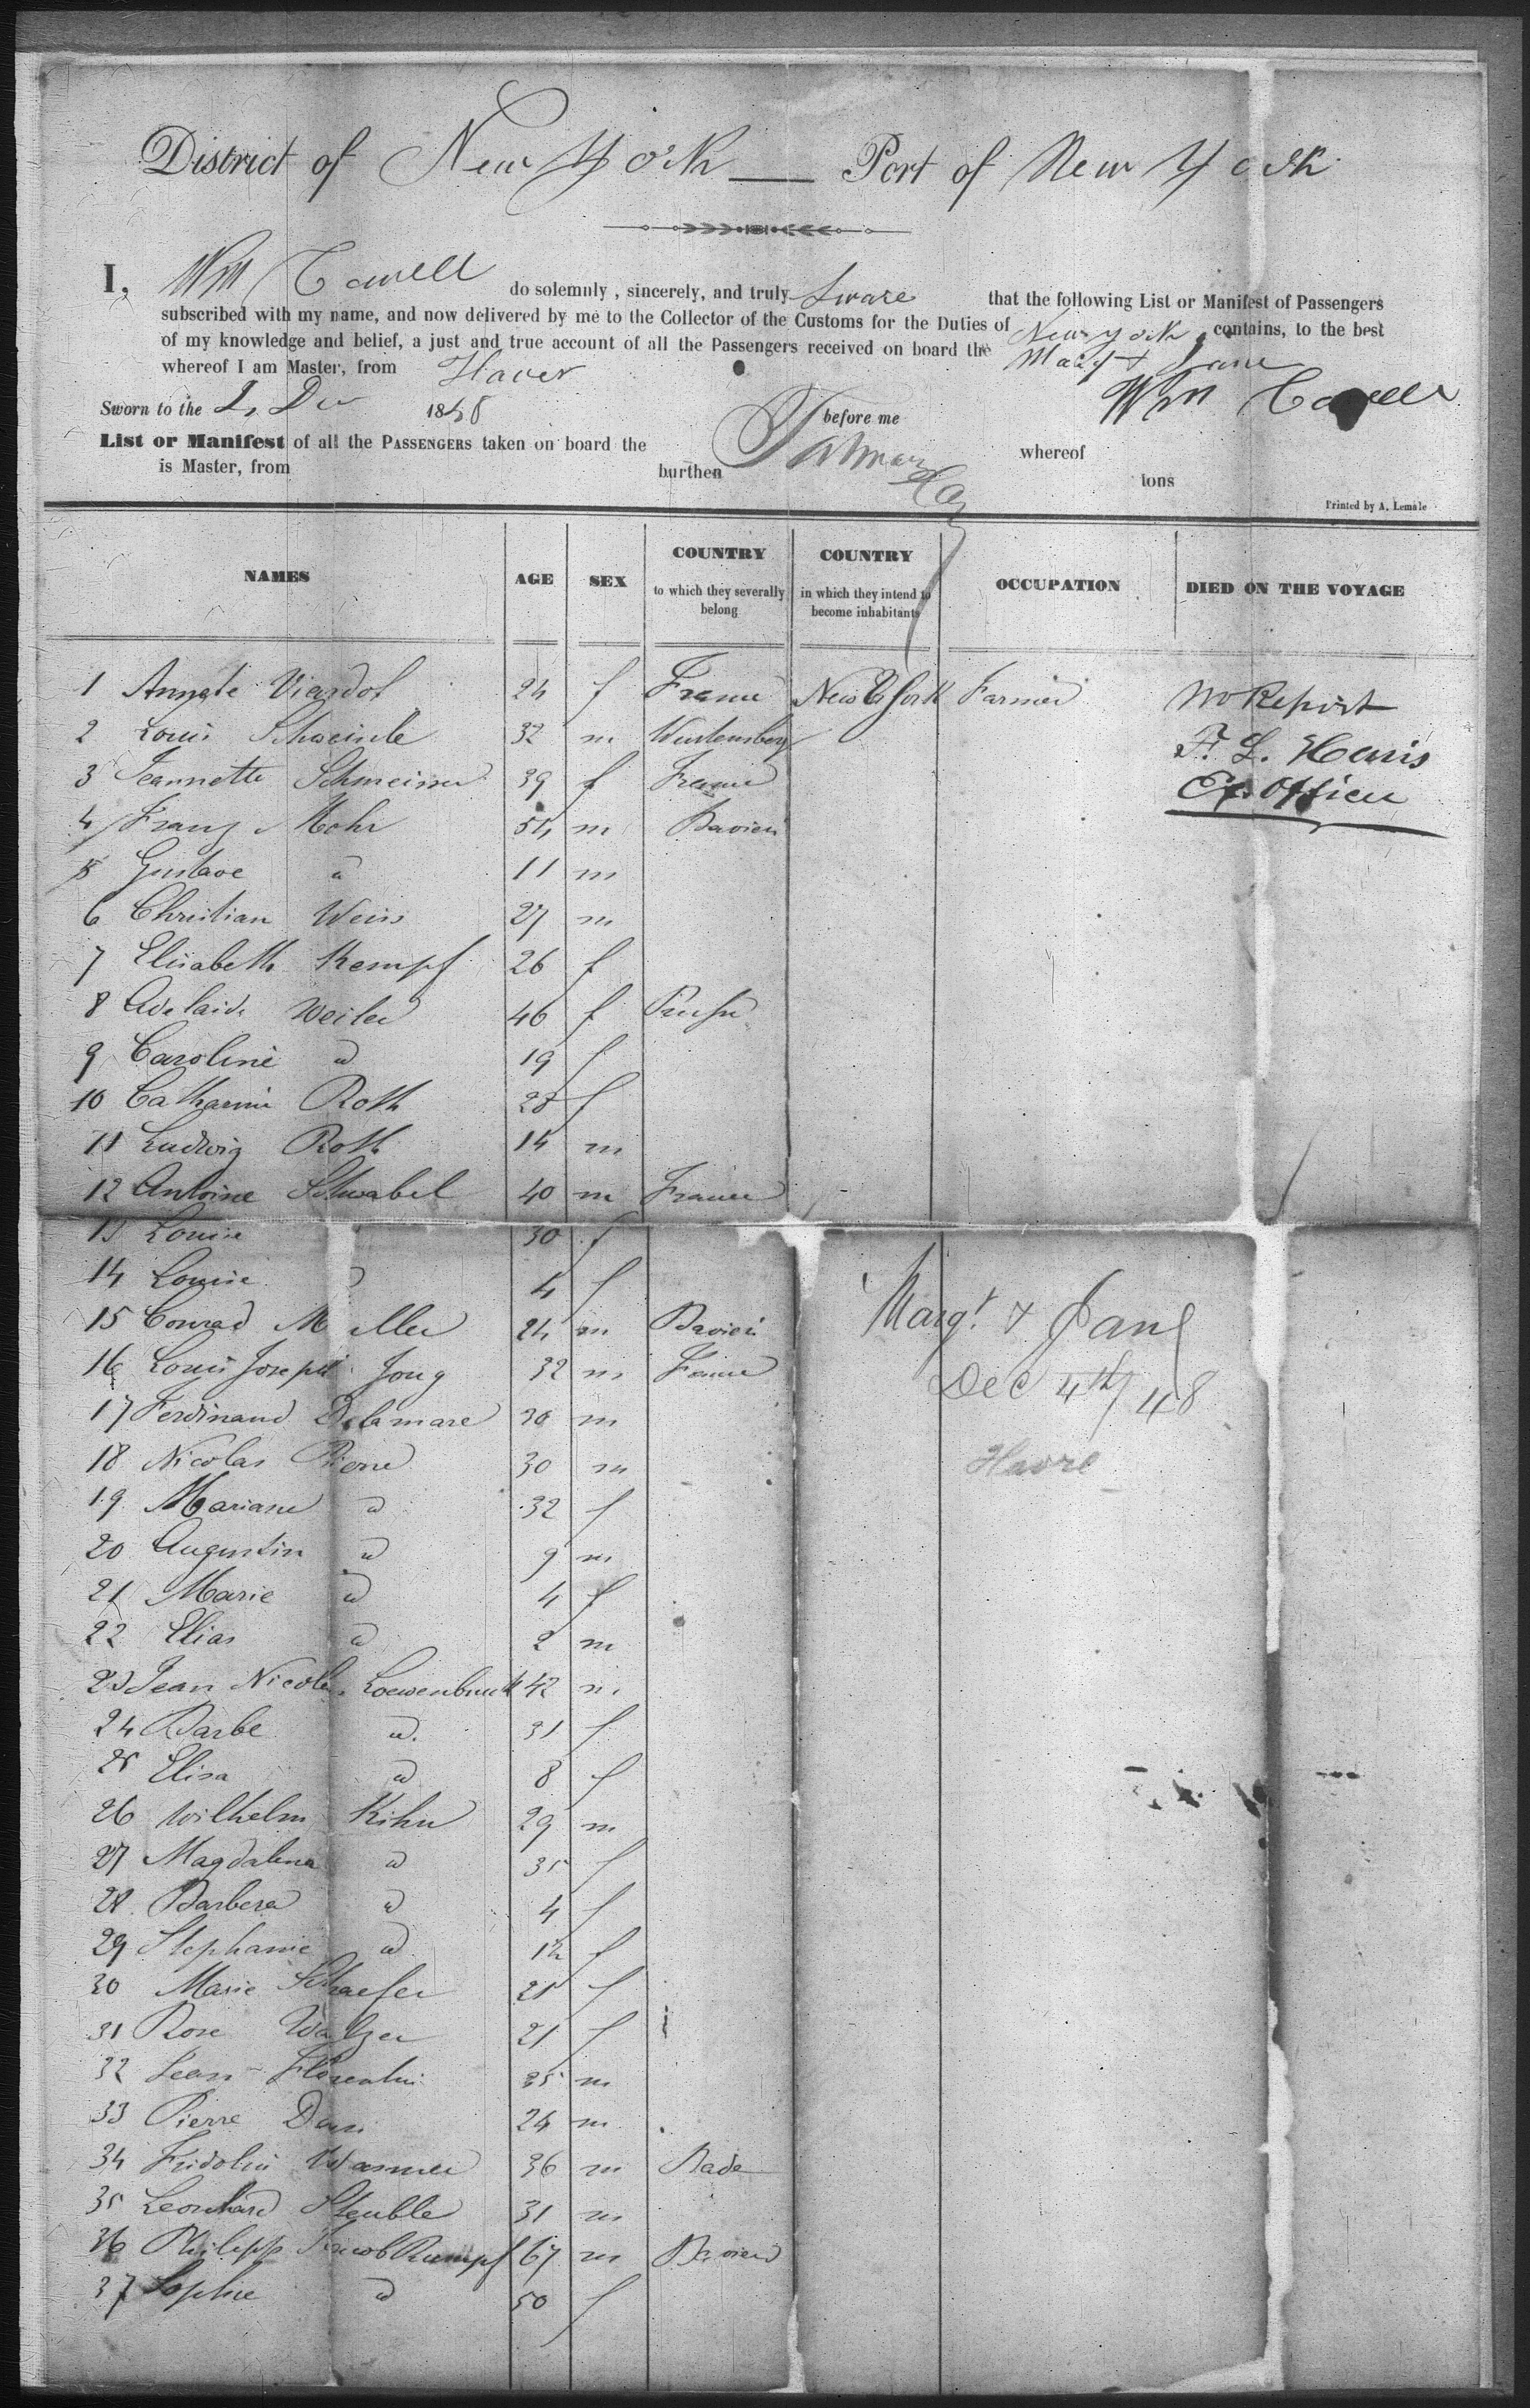 District of New York Port of New York
I, Wm Cowell do solemnly, sincerely, and truly Sware that the following List or Manifest of Passengers
subscribed with my name, and now delivered by me to the Collector of the Customs for the Duties of New York contains, to the best
of my knowledge and belief, a just and true account of all the Passengers received on board the
whereof I am Master, from Haver
Wm
Sworn to the Dec 1848 before me
List or Manifest of all the PASSENGERS taken on board the whereof
is Master, from burthen tons
Printed by A. Lemâle
NAMES AGE SEX COUNTRY to which they severally belong COUNTRY in which they intend to become inhabitants OCCUPATION DIED ON THE VOYAGE
1 Viardot 24 f France New York Farmer No Report
2 Louis 32 m F. L.
3 Jeannette 39 f France Officer
4 Franz Mohr 54 m Bavier
5 Gustave d 11 m
6 Christian Weis 27 m
7 Elisabeth Kempf 26 f
8 Adelaide Weiler 46 f
9 Caroline d 19 f
10 Catharine Roth 28 f
11 Ludwig Roth 14 m
12 Antoine Schwabel 40 m France
13 Louise 30 f
14 Louise 4 f
15 Conrad M ller 24 m Bavier
16 Louis Joseph Jong 32 m France
17 Ferdinand Delamare m
18 Nicolas Pierre 30 m
19 Mariane d 32 f
20 Augustin d 9 m
21 Marie d 4 f
22 Elias d 2 m
23 Jean Nicolas Loewenbruck 42 m
24 Barbe d. 31 f
25 Elisa d 8 f
26 Wilhelm Kihn 29 m
27 Magdalena d 35 f
28 Barbera d 4 f
29 Stephanie d f
30 Marie Schaefer 21 f
31 Rose Walzer 21 f
32 Jean Florentin m
33 Pierre 24 m
34 Fridolin 36 m Bade
35 Leonhard Steuble 31 m
36 Philipp Jacob Rumpf 67 m
37 Sophie d 50 f
Margt & Jane
Dec 4th / 48
Havre